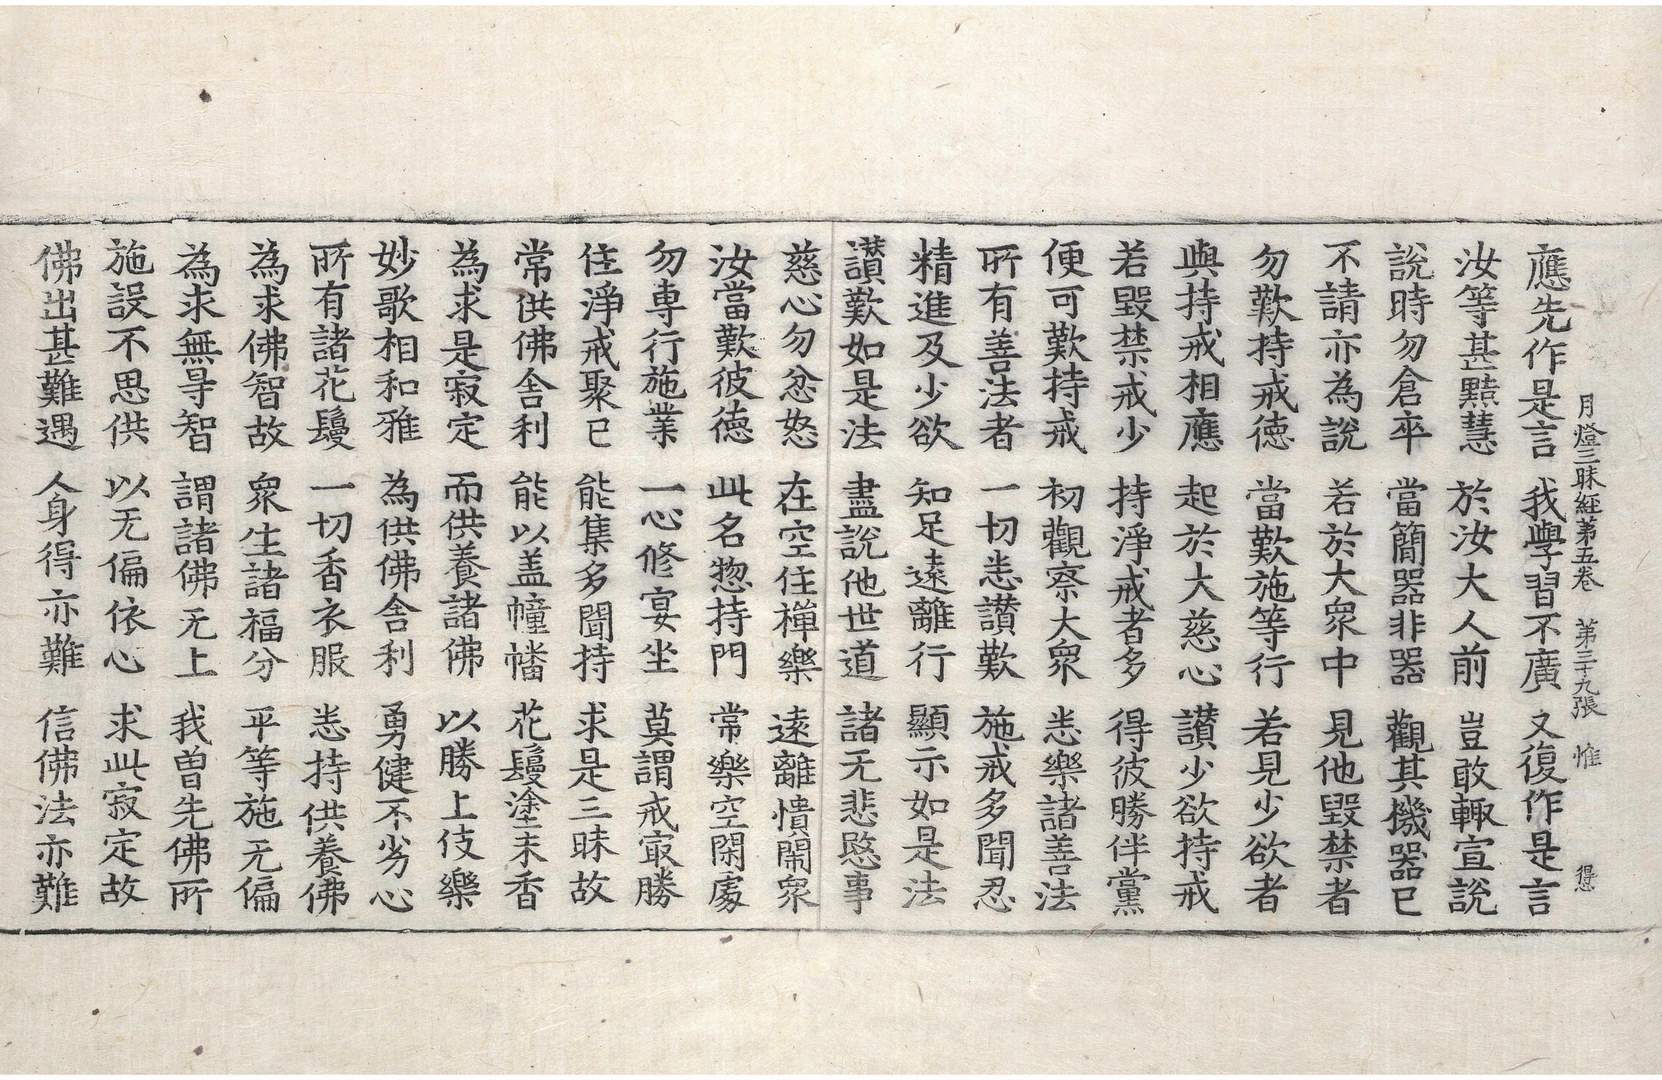 月燈三昧經第五卷 第三十九張 惟 㥁
應先作是言 我學習不廣 又復作是言
汝等甚黠慧 於汝大人前 豈敢輙宣說
說時勿倉卒 當簡器非器 觀其機器已
不請亦為說 若於大衆中 見他毀禁者
勿歎持戒德 當歎施等行 若見少欲者
與持戒相應 起於大慈心 讃少欲持戒
若毀禁戒少 持淨戒者多 得彼勝伴黨
便可歎持戒 初觀察大衆 悉樂諸善法
所有善法者 一切悉讃歎 施戒多聞忍
精進及少欲 知足遠離行 顯示如是法
讃歎如是法 盡說他世道 諸无悲愍事
慈心勿忿怒 在空住禪樂 遠離憒閙衆
汝當歎彼德 此名惣持門 常樂空閑處
勿専行施業 一心修宴坐 莫謂戒㝡勝
住淨戒聚已 能集多聞持 求是三昧故
常供佛舍利 能以盖幢幡 花鬘塗末香
為求是寂定 而供養諸佛 以勝上伎樂
妙歌相和雅 為供佛舍利 勇健不劣心
所有諸花鬘 一切香衣服 悉持供養佛
為求佛智故 衆生諸福分 平等施无偏
為求無㝵智 謂諸佛无上 我曽先佛所
施設不思供 以无偏依心 求此寂定故
佛出甚難遇 人身得亦難 信佛法亦難